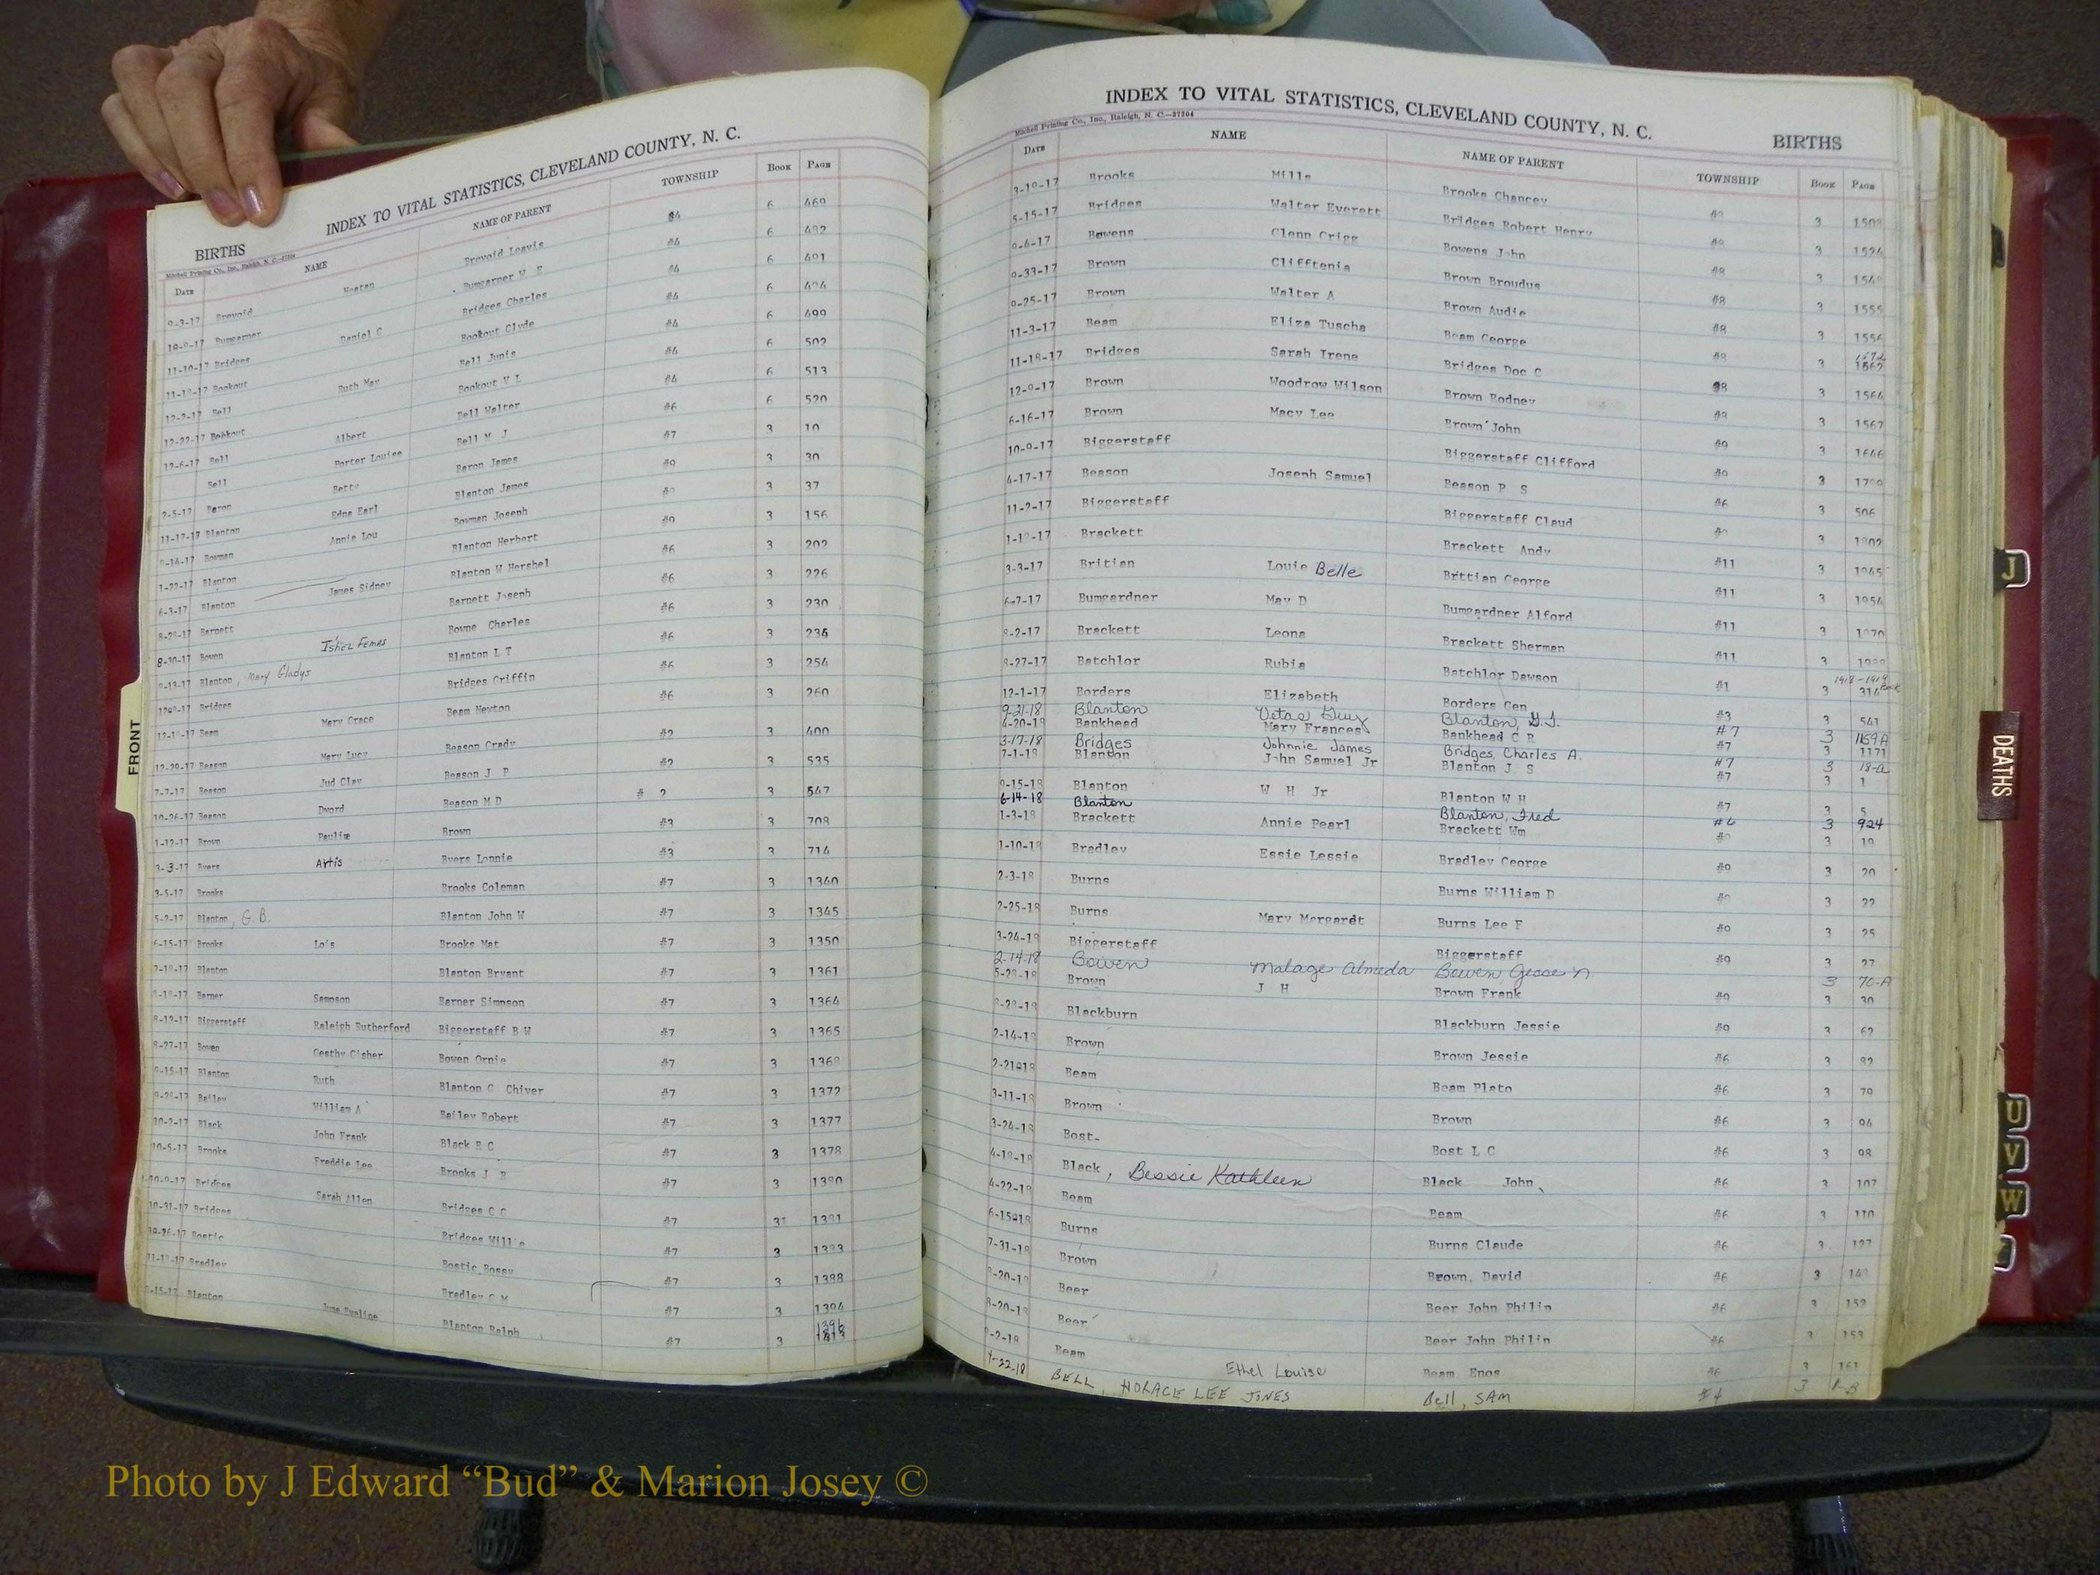 INDEX TO VITAL STATISTICS, CLEVELAND COUNTY, N. C.
BIRTHS
DATE NAME NAME OF PARENT TOWNSHIP BOOK PAGE
9-3-17 Brevoid Brevoid Leavis #4 6 469
10-9-17 Bumgarner Bumgarner W E #4 6 482
11-10-17 Bridges Daniel C Bridges Charles #4 6 491
Bookout Bookout Clyde #4 6 494
12-2-17 Bell Ruth May Bell Junis #4 6 499
12-22-17 Bookout Bookout V L #4 6 502
12-6-17 Bell Albert Bell Walter #4 6 513
Bell Porter Louise Bell M J #6 6 520
2-5-17 Baron Betty Baron James #7 3 10
11-17-17 Blanton Edna Earl Blanton James #9 3 30
Bowman Annie Lou Bowman Joseph 3 37
1-22-17 Blanton Blanton Herbert #9 3 156
6-3-17 Blanton James Sidney Blanton W Hershel #6 3 202
8-28-17 Barnett Barnett Joseph #6 3 226
8-30-17 Bowen Ishel Femas Bowne Charles #6 3 230
Blanton, Mary Gladys Blanton L T #6 3 236
Bridges Bridges Griffin #6 3 254
Beam Mary Grace Beam Newton #6 3 260
12-29-17 Beason Mary Lucy Beason Grady #2 3 400
7-7-17 Beason Jud Clay Beason J P #2 3 535
10-26-17 Beason Dword Beason M D # 2 3 547
1-12-17 Brown Pauline Brown #3 3 708
3-3-17 Byers Artis Byers Lonnie #3 3 714
3-5-17 Brooks Brooks Coleman #7 3 1340
5-2-17 Blanton, G. B. Blanton John W #7 3 1345
6-15-17 Brooks Lois Brooks Mat #7 3 1350
Blanton Blanton Bryant #7 3 1361
Barner Sampson Barner Simpson #7 3 1364
8-12-17 Biggerstaff Raleigh Rutherford Biggerstaff B W #7 3 1365
8-27-17 Bowen Geathy Cisher Bowen Ornie #7 3 1368
9-15-17 Blanton Ruth Blanton G Chiver #7 3 1372
Bailey William A Bailey Robert #7 3 1377
10-2-17 Black John Frank Black R C #7 3 1378
10-5-17 Brooks Freddie Lee Brooks J R #7 3 1380
Bridges Sarah Allen Bridges C C #7 1381
10-31-17 Bridges Bridges Willie #7 3 1383
Bostic Bostic Bossy #7 3 1388
Bradley Bradley C M #7 3 1394
Blanton June Eveline Blanton Ralph #7 3 1396
INDEX TO VITAL STATISTICS, CLEVELAND COUNTY, N. C.
BIRTHS
Mitchell Printing Co., Inc., Raleigh, N. C.—27204
DATE NAME NAME OF PARENT TOWNSHIP BOOK PAGE
3-10-17 Brooks Mills Brooks Chancey 3 1508
5-15-17 Bridges Walter Everett Bridges Robert Henry #8 3 1524
9-4-17 Bowens Glenn Crigg Bowens John #8 3 1548
9-33-17 Brown Clifftenia Brown Broudus #8 3 1555
9-25-17 Brown Walter A Brown Audie #8 3 1556
11-3-17 Beam Eliza Tuscha Beam George #8 3 1572 1562
11-18-17 Bridges Sarah Irene Bridges Doc C #8 3 1564
12-9-17 Brown Woodrow Wilson Brown Rodney #8 3 1567
6-16-17 Brown Macy Lee Brown John #9 3 1646
10-9-17 Biggerstaff Biggerstaff Clifford #9 3
4-17-17 Beason Joseph Samuel Beason P S #6 3 506
11-2-17 Biggerstaff Biggerstaff Claud 3 1802
Brackett Brackett Andy #11 3
3-3-17 Britian Louie Belle Brittian George #11 3 1954
6-7-17 Bumgardner May D Bumgardner Alford #11 3
Brackett Leona Brackett Sherman #11 3
Batchlor Rubia Batchlor Dawson #1 3 314 1918-1919 Book
12-1-17 Borders Elizabeth Borders Gen #3 3 541
9-21-18 Blanton Vetas Guy Blanton, G. T. #7 3 1169A
4-20-18 Bankhead Mary Frances Bankhead C R #7 3 1171
3-17-18 Bridges Johnnie James Bridges, Charles A. #7 3 18-a
7-1-18 Blanton John Samuel Jr Blanton J S #7 3 1
9-15-18 Blanton W H Jr Blanton W H #7 3 5
6-14-18 Blanton Blanton, Fred #6 3 924
1-3-18 Brackett Annie Pearl Brackett Wm 3 19
1-10-18 Bradley Essie Lessie Bradley George #9 3 20
2-3-18 Burns Burns William D 3 22
2-25-18 Burns Mary Margardt Burns Lee F #9 3 25
3-24-18 Biggerstaff Biggerstaff #9 3 27
2-14-18 Bowen Malage Almeda Bowen 3 70-A
5-28-18 Brown J H Brown Frank #9 3 30
Blackburn Blackburn Jessie #9 3 62
2-14-18 Brown Brown Jessie #6 3 82
2-21-18 Beam Beam Plato #6 3 79
3-11-18 Brown Brown #6 3 94
3-24-18 Bost Bost L C #6 3 98
4-18-18 Black, Bessie Kathleen Black John #6 3 107
4-22-18 Beam Beam #6 3 110
6-15-18 Burns Burns Claude #6 3
7-31-18 Brown Brown, David #6 3
8-20-18 Beer Beer John Philip #6 3 152
8-20-18 Beer Beer John Philip #6 3 153
9-2-18 Beam Ethel Louise Beam Enos #6 3 161
4-22-18 BELL, HORACE LEE JONES Bell, SAM #4 3
FRONT
J
DEATHS
U
V
W
Photo by J Edward “Bud” & Marion Josey ©